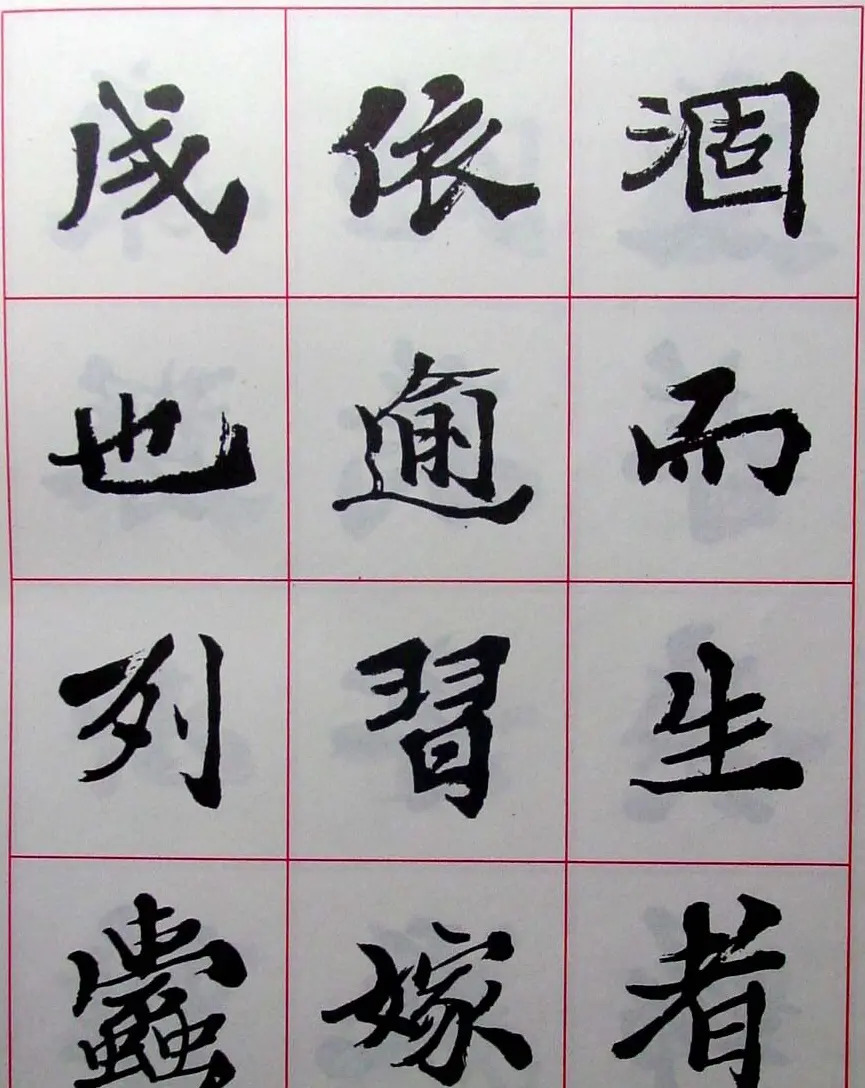 涸而生者
依逾習嫁
成也列蠹